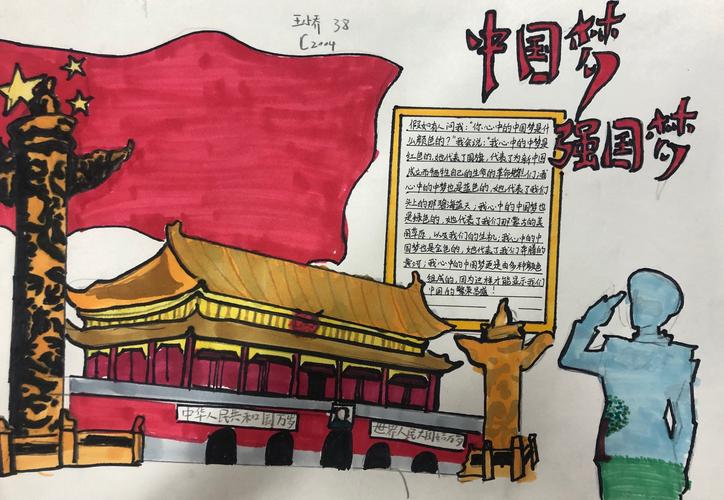 38
C2004
中国梦
强国梦
假如有人问我："你心中的中国梦是什
么颜色的？"我会说："我心中的中梦是
红色的，她代表了国旗，代表了为新中国
成立而牺牲自己的生命的革命烈士们；我
心中的中梦也是蓝色的，她代表了我们
头上的那碧海蓝天；我心中的中国梦也
是绿色的，她代表了我们那蒙古的美
丽草原，以及我们的生机；我心中的中
国梦也是金色的，她代表了我们奔腾的
黄河；我心中的中国梦更是由多种颜色
组成的，因为这样才能显示我们
中国的繁荣昌盛！
中华人民共和国万岁
世界人民大团结万岁